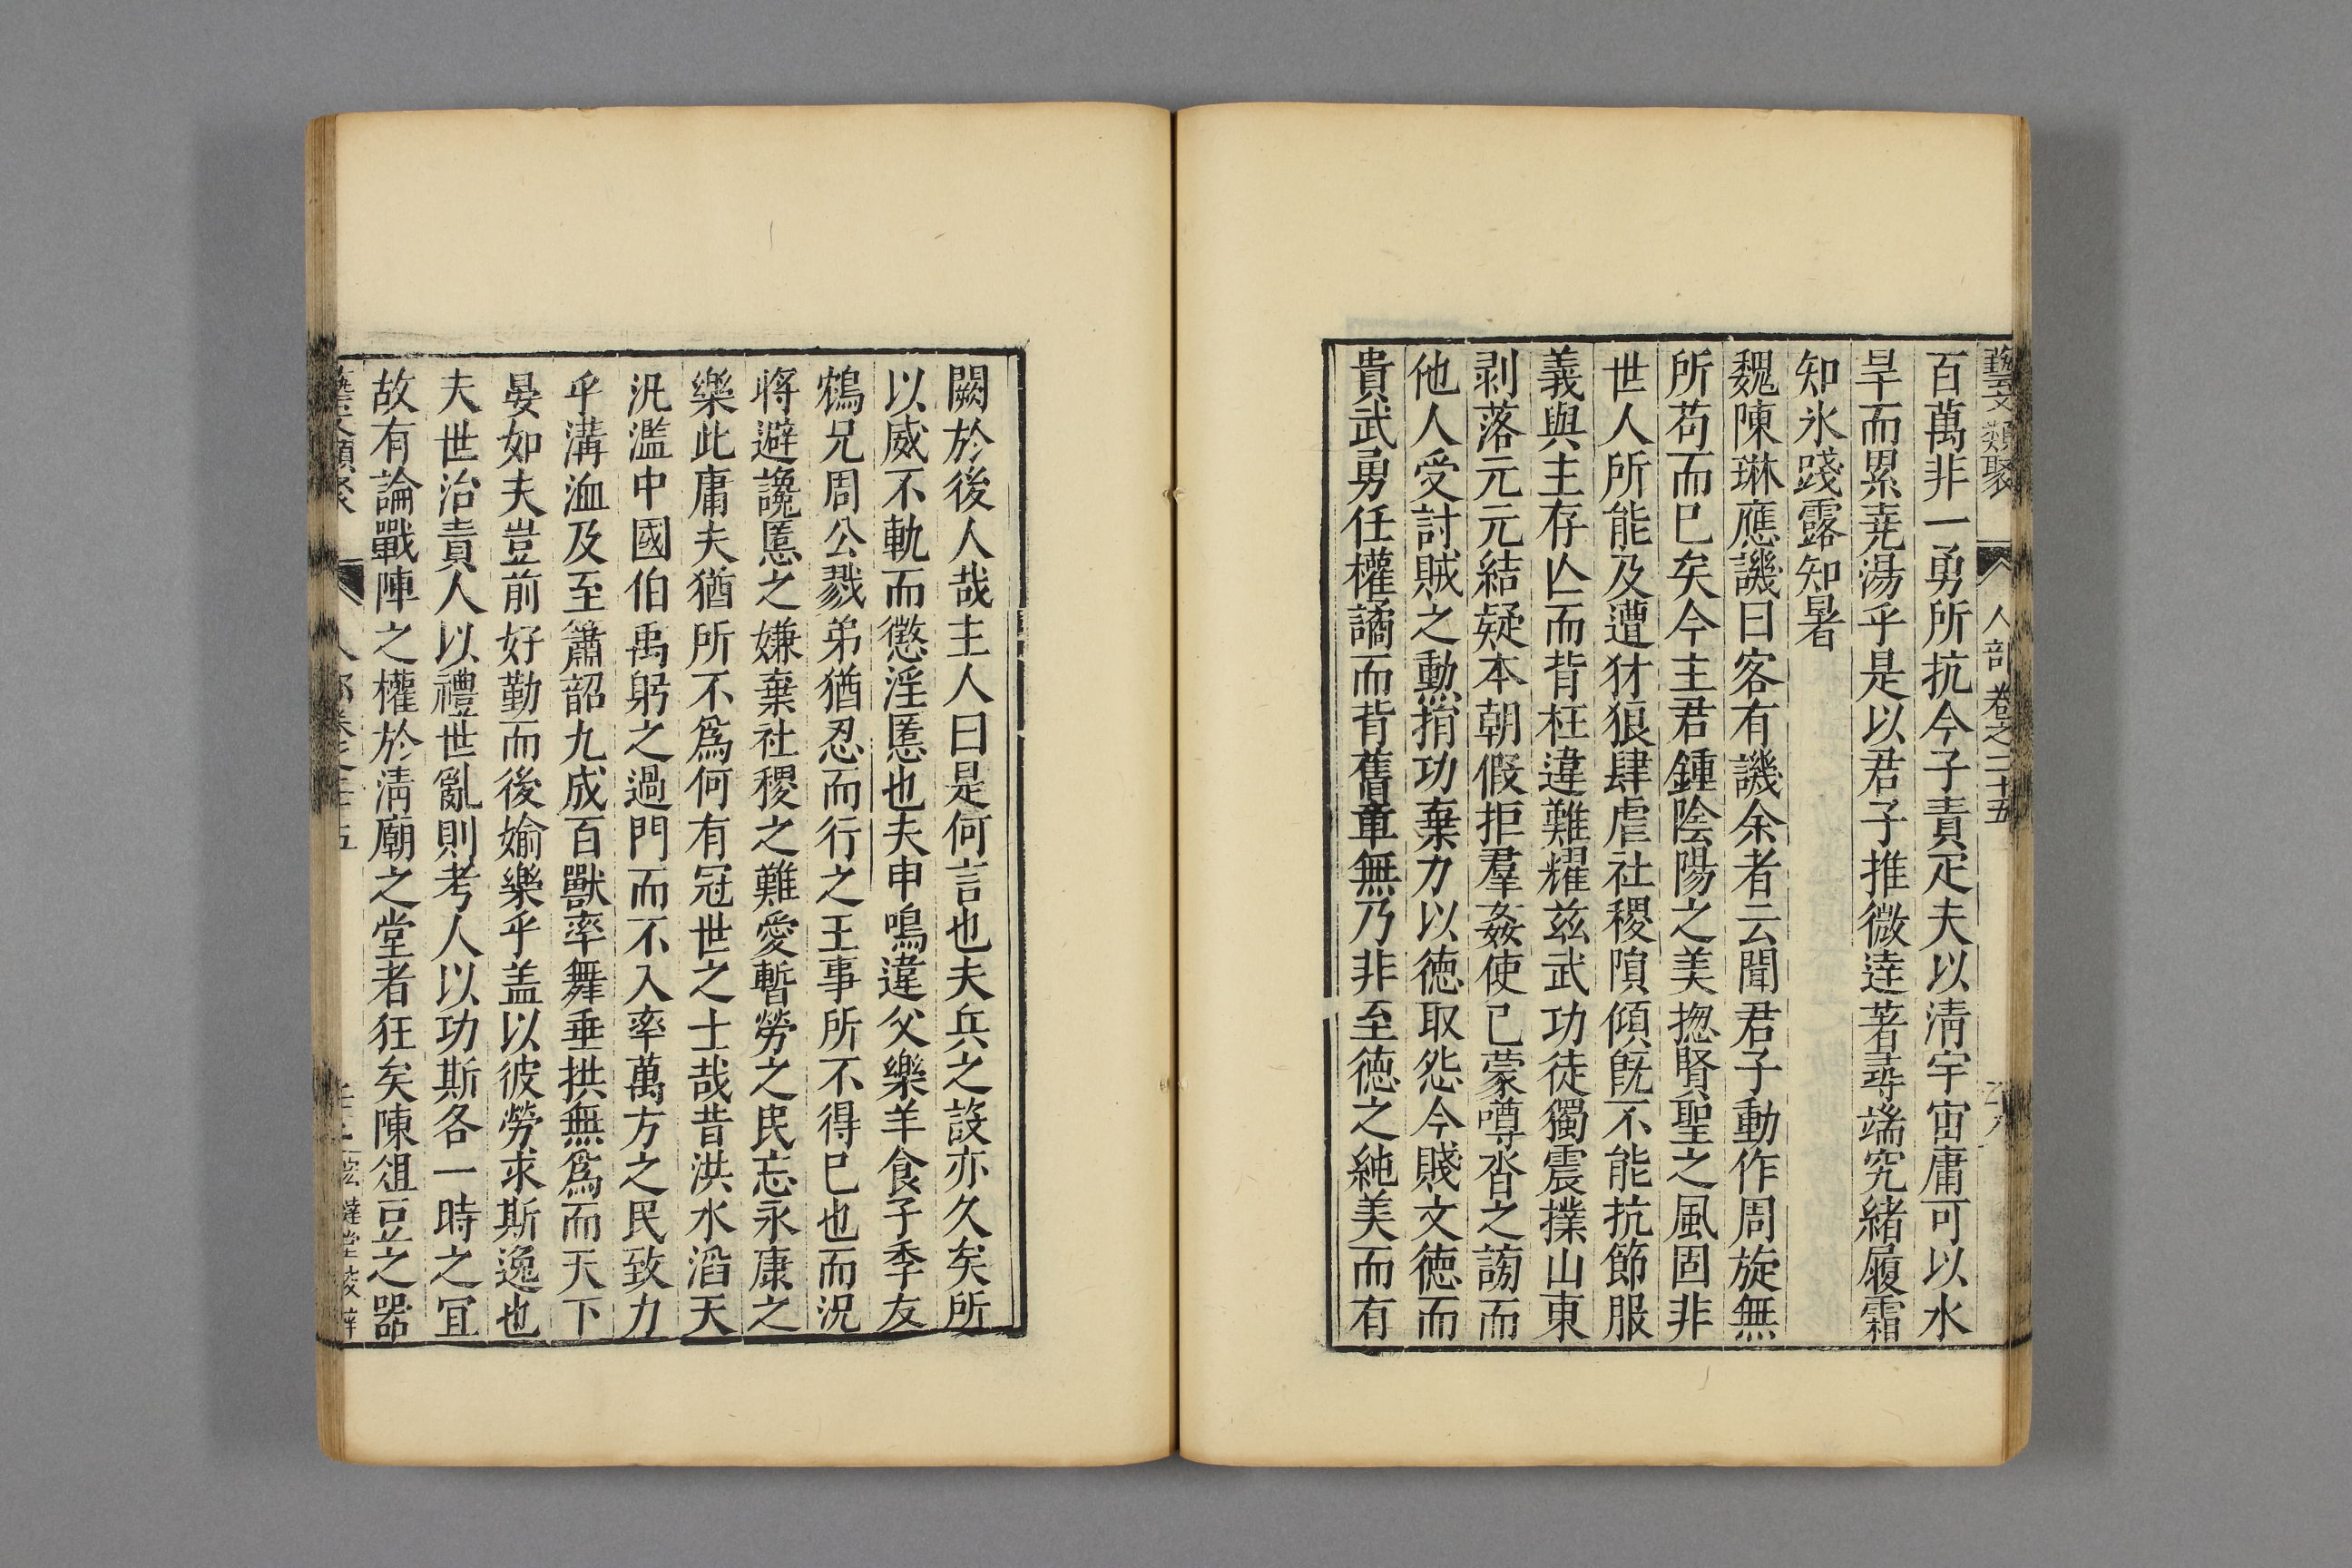 藝文類聚 人部卷之二十五
百萬非一勇所抗今子責疋夫以淸宇宙庸可以水
旱而累堯湯乎是以君子推微逹著尋端究緒履霜
知氷踐露知暑
魏陳琳應譏曰客有譏余者云聞君子動作周旋無
所苟而已矣今主君鍾陰陽之美揔賢聖之風固非
世人所能及遭犲狼肆虐社稷隕傾旣不能抗節服
義與主存亾而背枉違難耀兹武功徒獨震撲山東
剥落元元結疑本朝假拒羣姦使已蒙噂沓之謗而
他人受討賊之勲捐功棄力以徳取怨今賤文徳而
貴武勇任權譎而背舊章無乃非至徳之純美而有
闕於後人哉主人曰是何言也夫兵之設亦久矣所
以威不軌而懲淫慝也夫申鳴違父樂羊食子季友
鴆兄周公戮弟猶忍而行之王事所不得已也而況
將避讒慝之嫌棄社稷之難愛暫勞之民忘永康之
樂此庸夫猶所不爲何有冠世之士哉昔洪水滔天
汎濫中國伯禹躬之過門而不入率萬方之民致力
乎溝洫及至簫韶九成百獸率舞垂拱無爲而天下
晏如夫豈前好勤而後婾樂乎盖以彼勞求斯逸也
夫世治責人以禮世亂則考人以功斯各一時之冝
故有論戰陣之權於淸廟之堂者狂矣陳俎豆之器